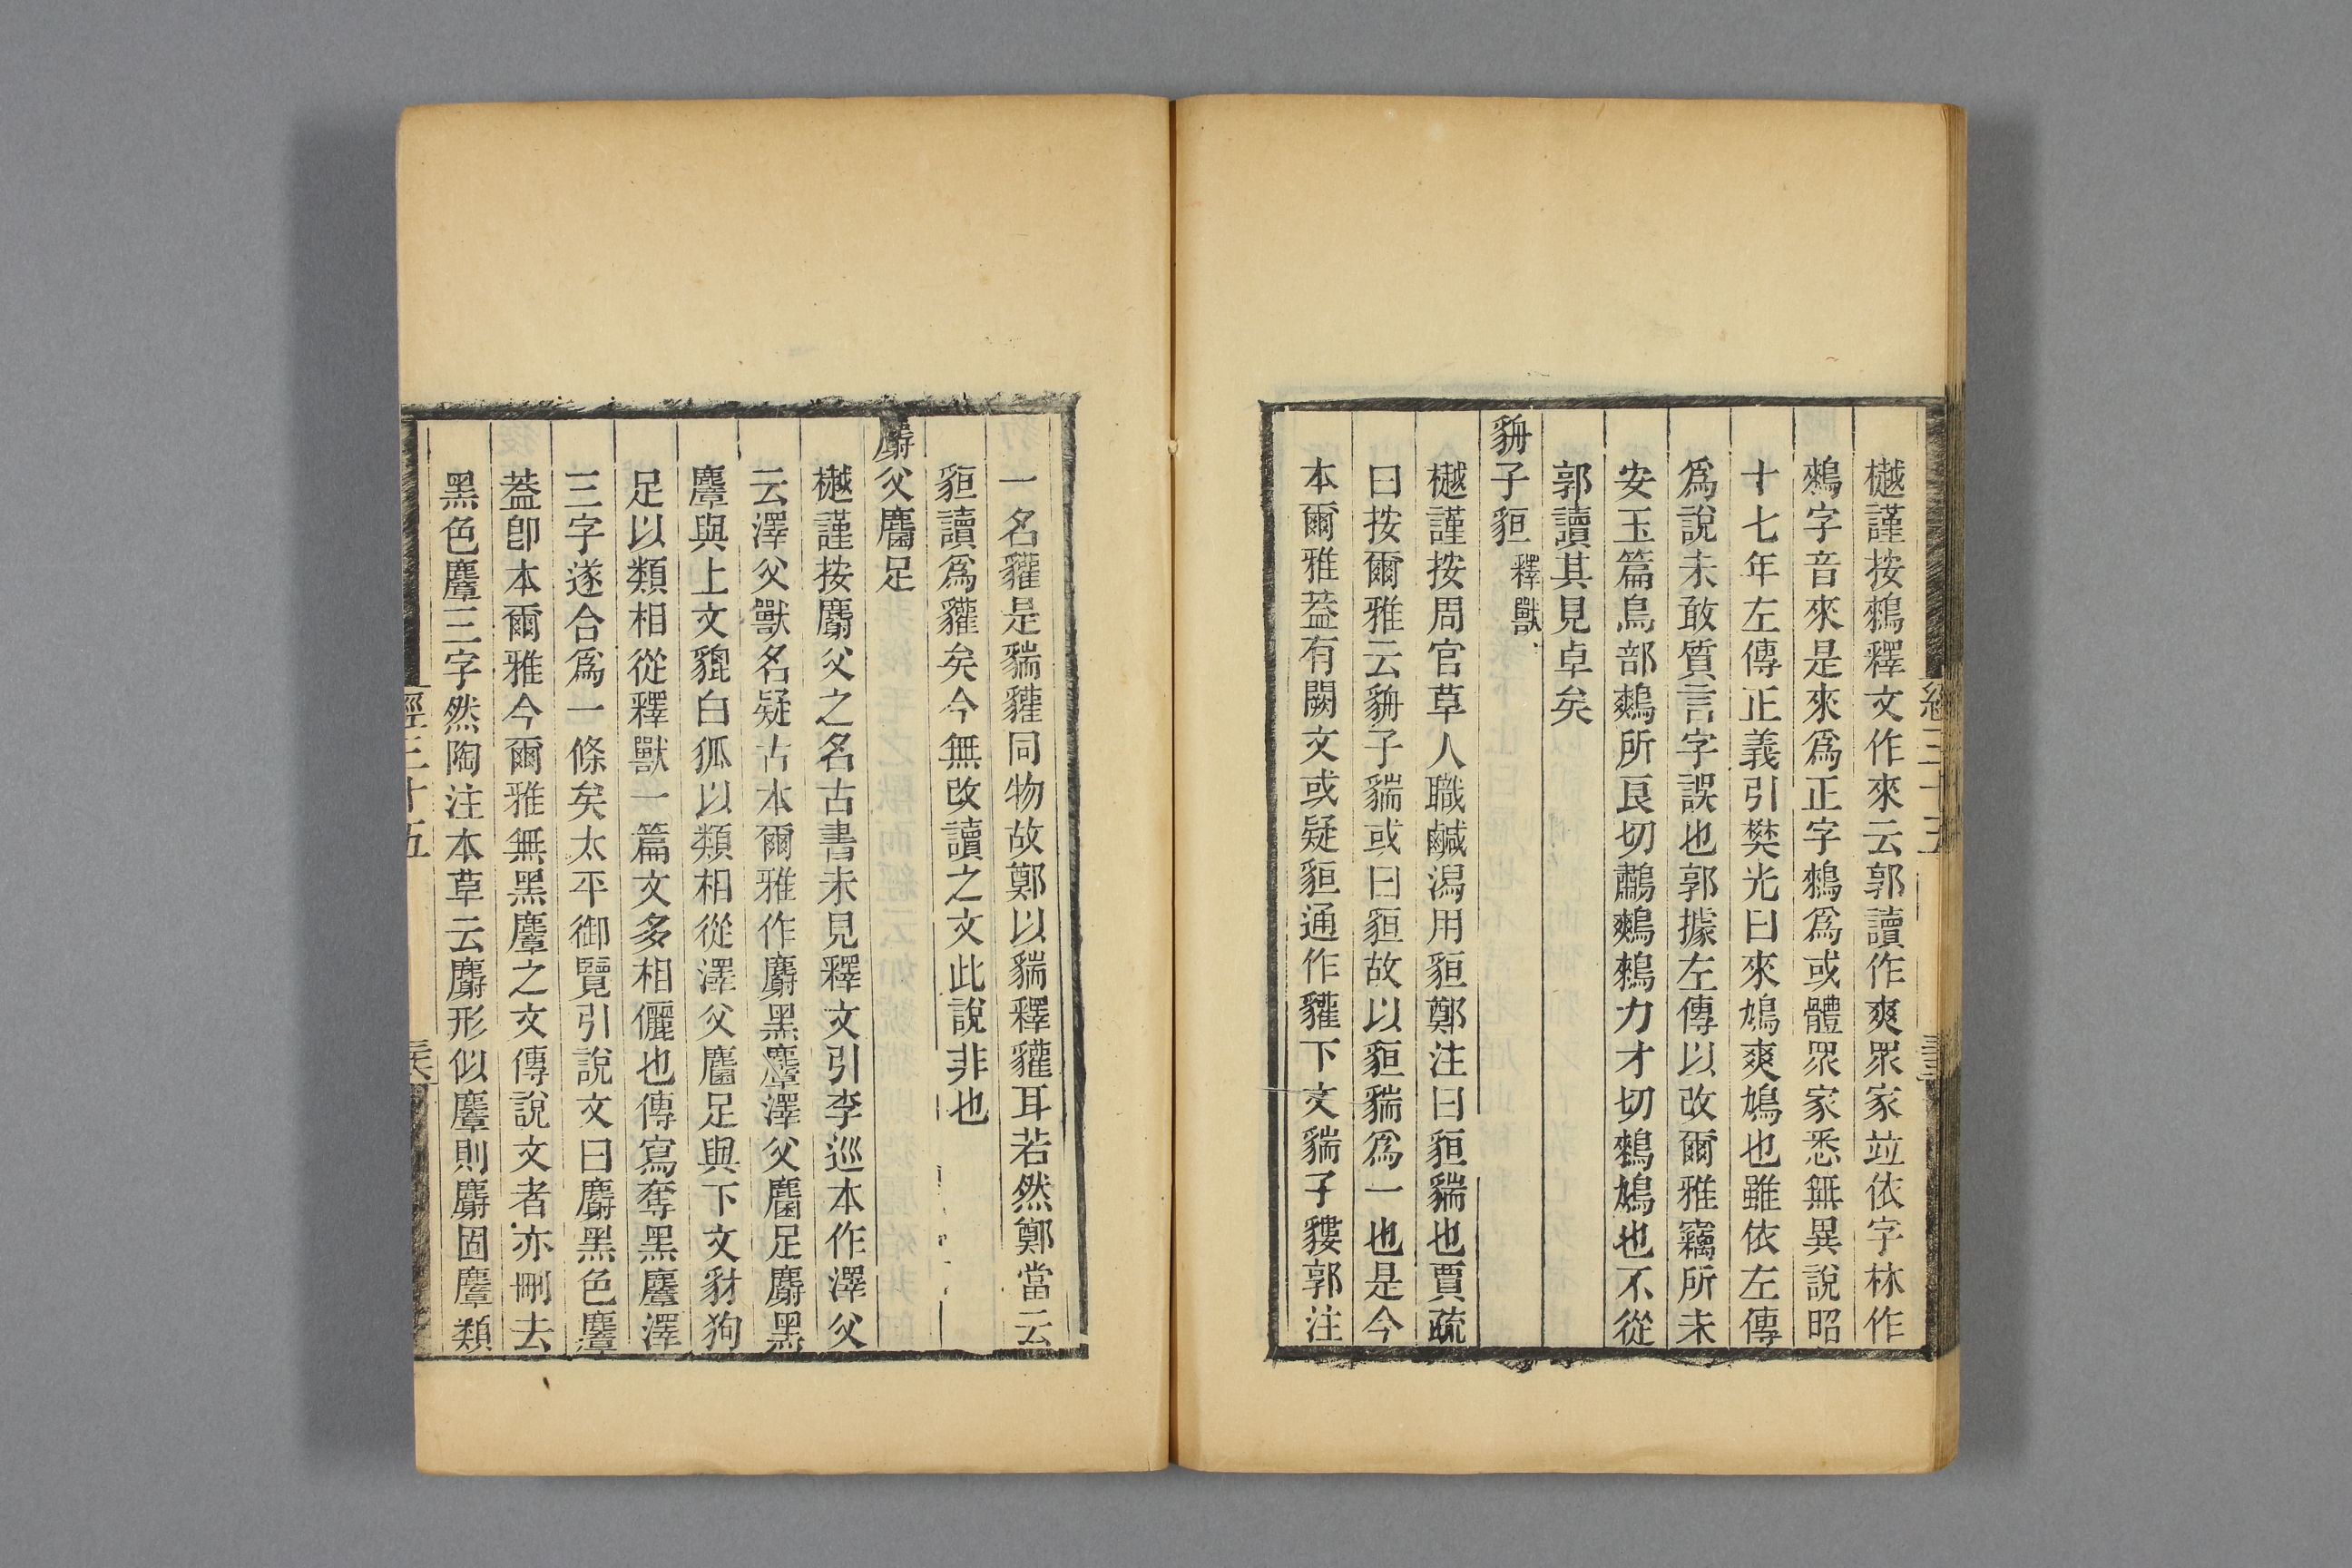 樾謹按鶆釋文作來云郭讀作爽眾家竝依字林作
鶆字音來是來爲正字鶆爲或體眾家悉無異說昭
十七年左傳正義引樊光曰來鳩爽鳩也雖依左傳
爲說未敢質言字誤也郭據左傳以改爾雅竊所未
安玉篇鳥部鷞所良切鷫鷞鶆力才切鶆鳩也不從
郭讀其見卓矣
貈子貆釋獸
樾謹按周官草人職鹹潟用貆鄭注曰貆貒也賈疏
曰按爾雅云貈子貒或曰貆故以貆貒爲一也是今
本爾雅葢有闕文或疑貆通作貛下文貒子貗郭注
經三十五
一名貛是貒貛同物故鄭以貒釋貛耳若然鄭當云
貆讀爲貛矣今無改讀之文此說非也
麝父麕足
樾謹按麝父之名古書未見釋文引李巡本作澤父
云澤父獸名疑古本爾雅作麝黑麞澤父麕足麝黑
麞與上文貔白狐以類相從澤父麕足與下文豺狗
足以類相從釋獸一篇文多相儷也傳寫奪黑麞澤
三字遂合爲一條矣太平御覽引說文曰麝黑色麞
葢卽本爾雅今爾雅無黑麞之文傳說文者亦刪去
黑色麞三字然陶注本草云麝形似麞則麝固麞類
經三十五